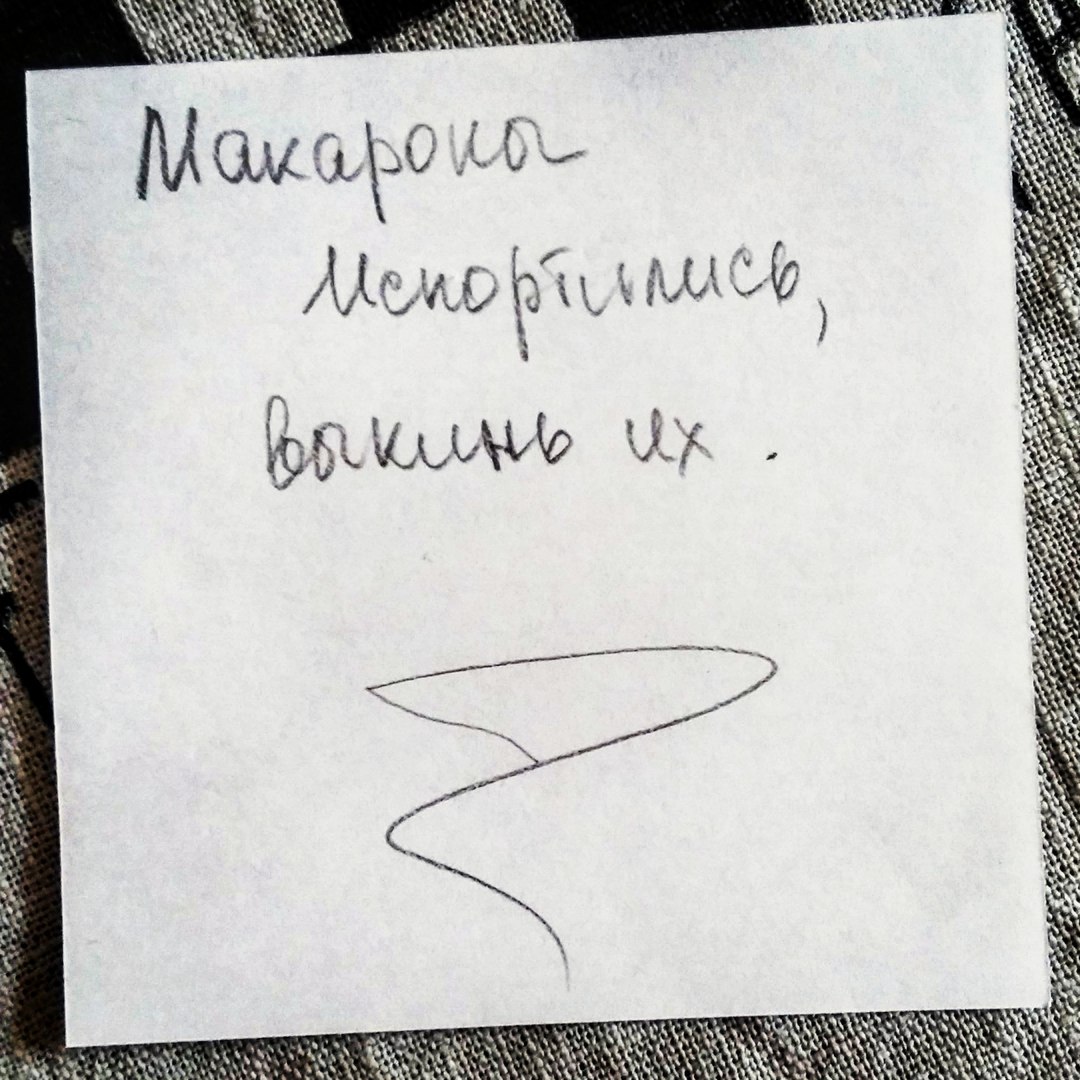 Макароны
Испортились,
выкинь их.